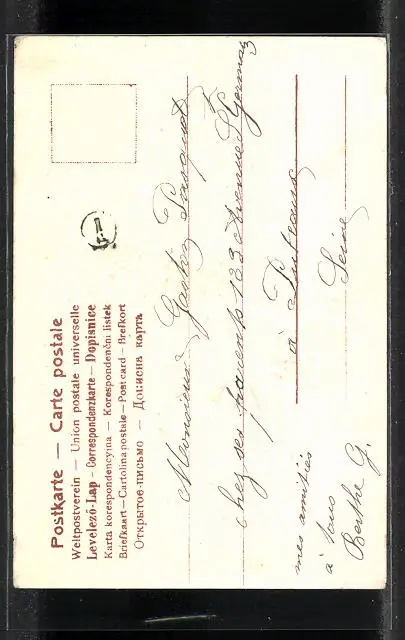 Postkarte — Carte postale
Weltpostverein — Union postale universelle
Levelező-Lap — Correspondenzkarte — Dopisnice
Karta korespondencyjna — Korespondenční listek
Briefkaart — Cartolina postale — Post card — Brefkort
Открытое письмо — Дописна карта
Monsieur Gaston Pasquet
chez ses parents 133 Avenue St Germain
à Puteaux
Seine
mes amitiés
à tous
Berthe G.